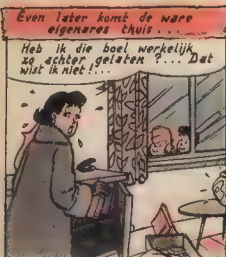 Even later komt de ware
eigenares thuis...
Heb ik die boel werkelijk
zo achter gelaten ?... Dat
wist ik niet !...